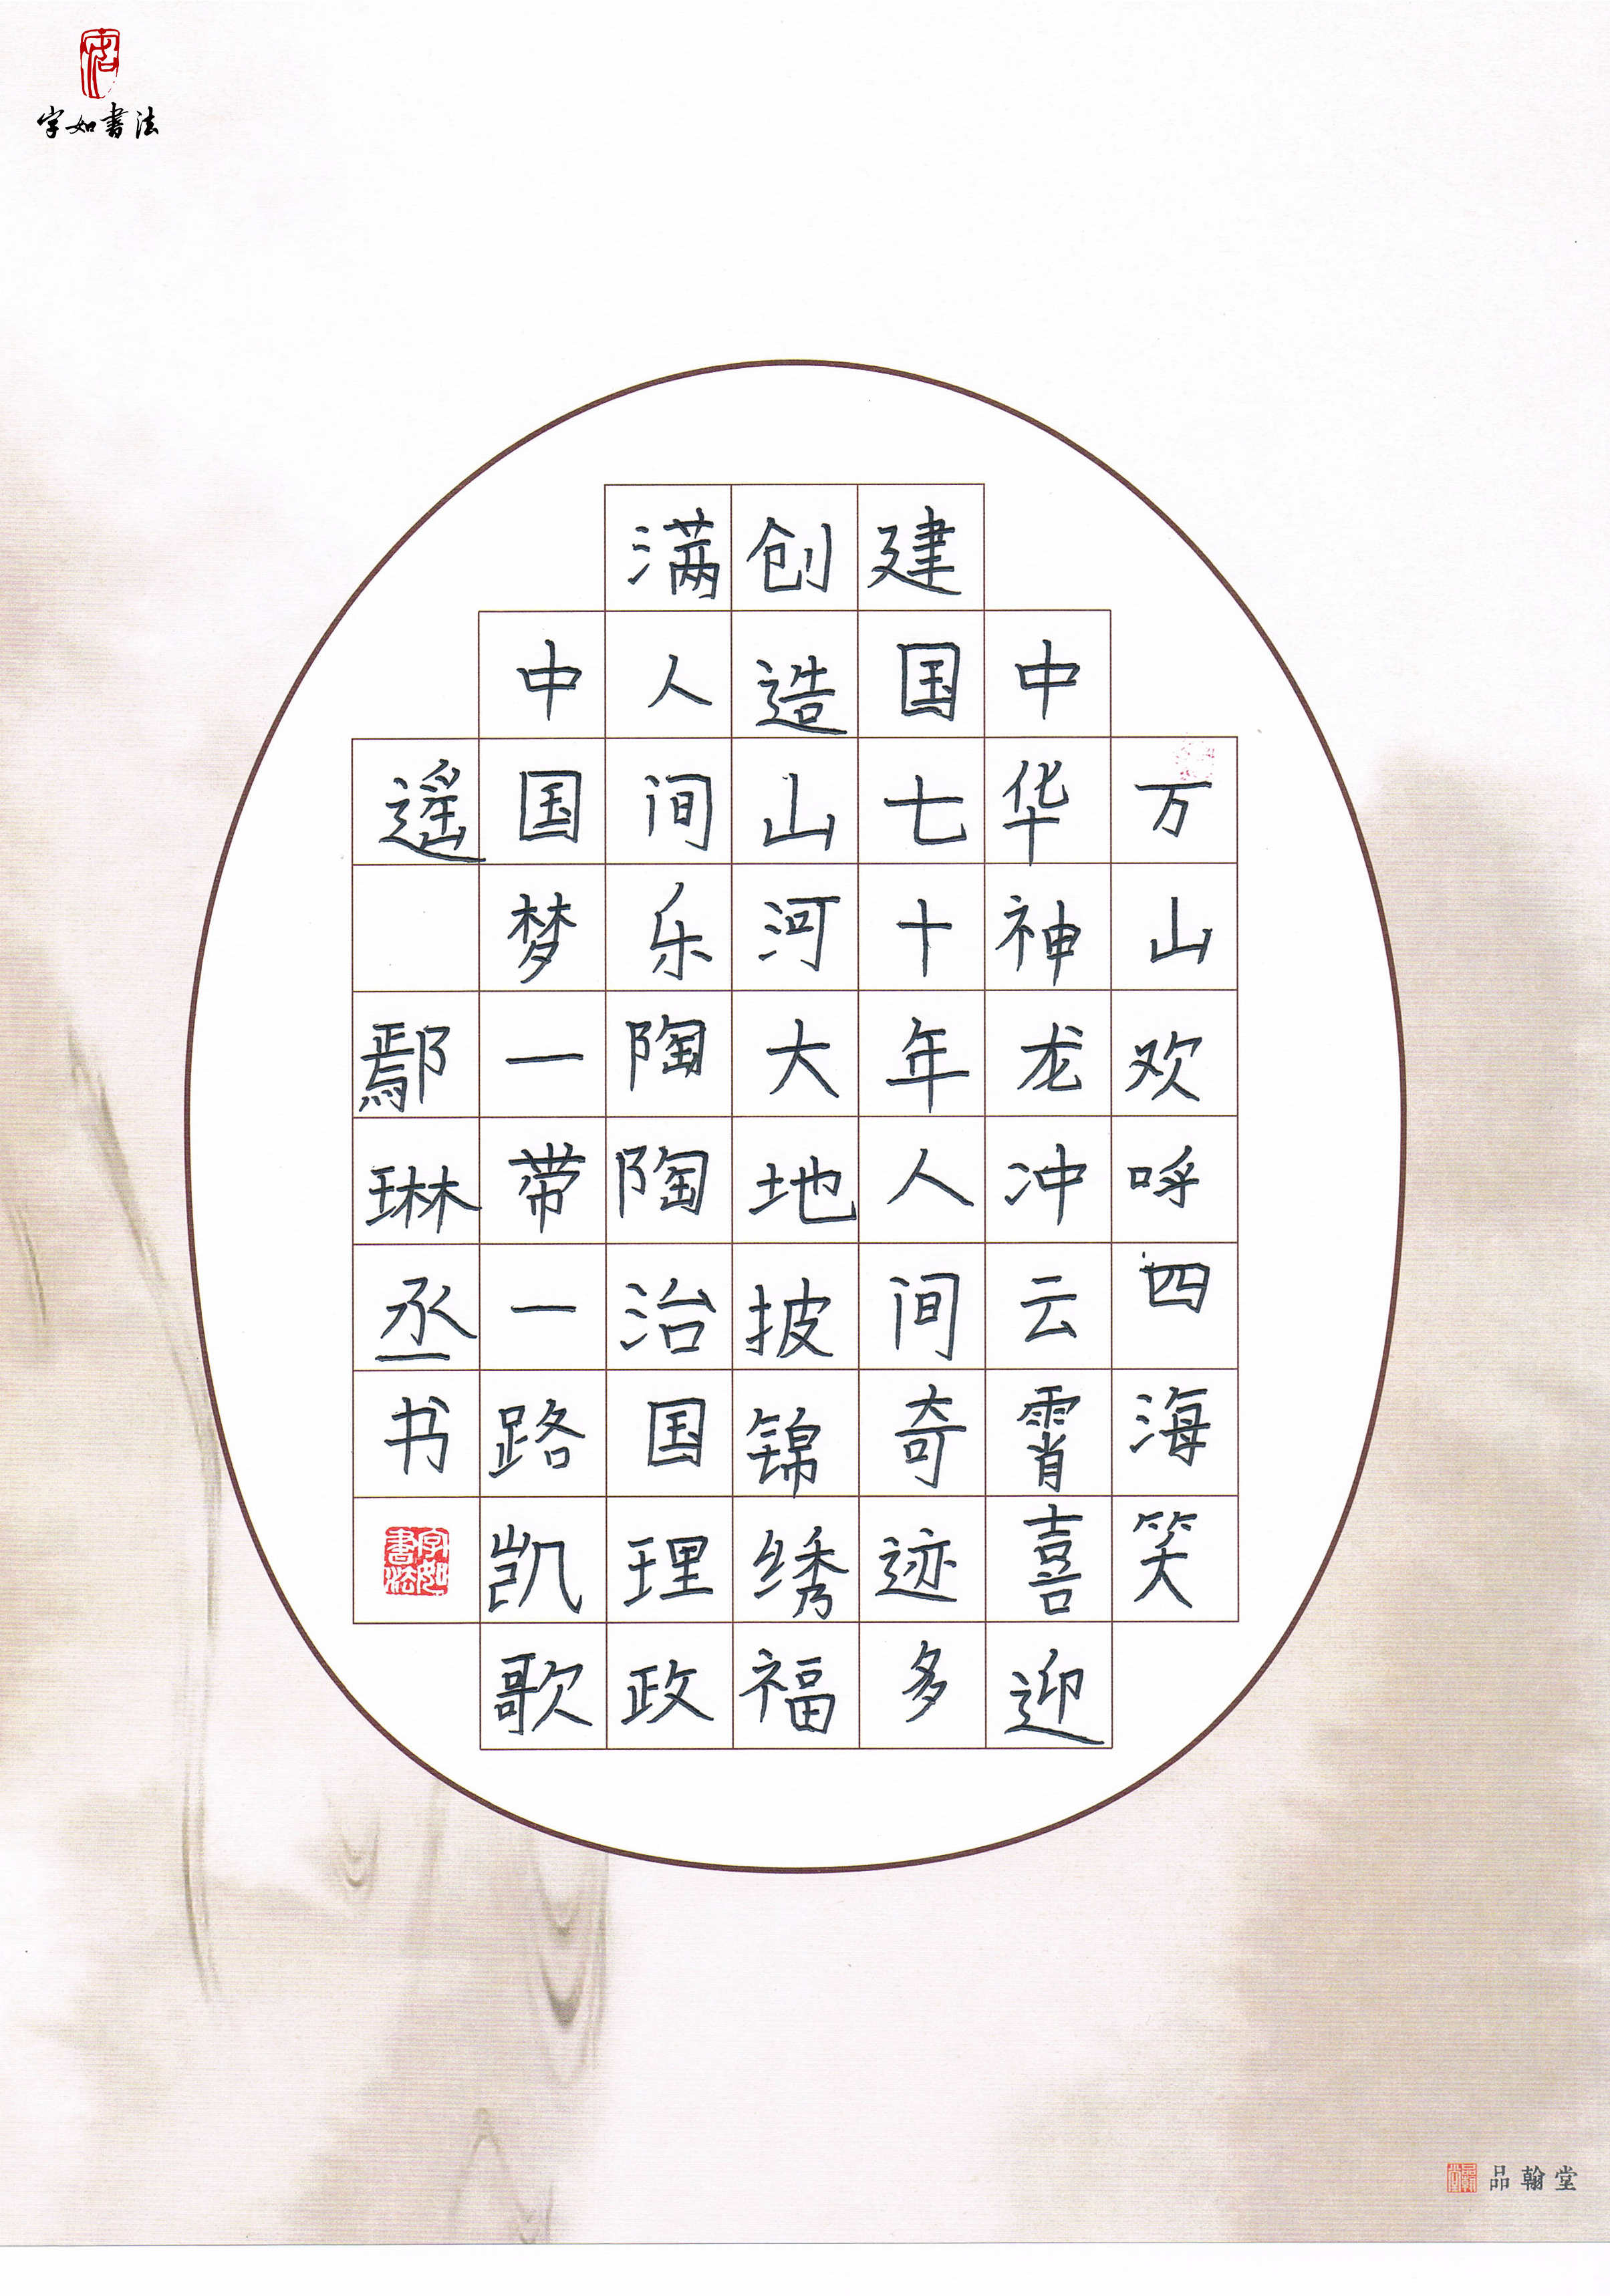 字如書法
万山欢呼四海笑
中华神龙冲云霄喜迎
建国七十年人间奇迹多
创造山河大地披锦绣福
满人间乐陶陶治国理政
中国梦一带一路凯歌
遥 鄢琳丞书
字如書法
品翰堂